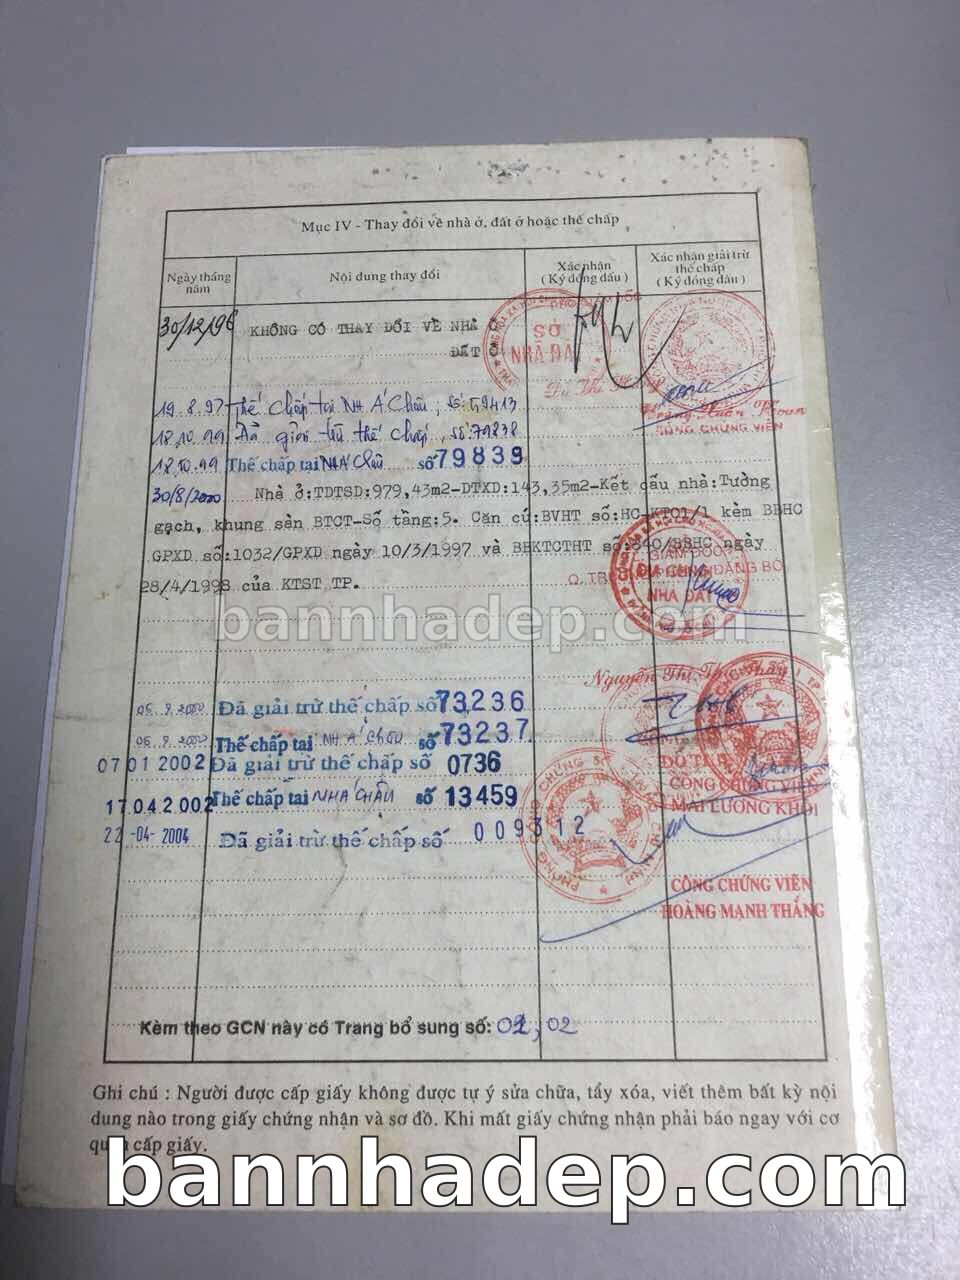 Mục IV - Thay đổi về nhà ở, đất ở hoặc thế chấp
Ngày tháng năm
Nội dung thay đổi
Xác nhận
(Ký đóng dấu)
Xác nhận giải trừ thế chấp
(Ký đóng dấu)
30/12/96 KHÔNG CÓ THAY ĐỔI VỀ NHÀ Ở
ĐẤT Ở
SỞ
NHÀ ĐẤT
CÔNG CHỨNG VIÊN
19.8.97 Thế chấp tại NH Á Châu, số:
18.10.99 Đã giải trừ thế chấp, số 79838
18.10.99 Thế chấp tại NH Á Châu số 79839
30/8/2000 Nhà ở:TDTSD:979,43m2-DTXD:143,35m2-Kết cấu nhà:Tường
gạch, khung sàn BTCT-Số tầng:5. Căn cứ:BVHT số:HC-KT01/1 kèm BBHC
GPXD số:1032/GPXD ngày 10/3/1997 và BBKTCTHT số:840/BBHC ngày
28/4/1998 của KTST TP.
NHÀ ĐẤT
bannhadep.com
05.9.2000 Đã giải trừ thế chấp số 73236
05.9.2000 Thế chấp tại NH Á Châu số 73237
07 01 2002 Đã giải trừ thế chấp số 0736
17.04.2002 Thế chấp tại NH Á CHÂU số 13459
22-04-2004 Đã giải trừ thế chấp số 009312
CÔNG CHỨNG VIÊN
MAI LƯƠNG KHÔI
CÔNG CHỨNG VIÊN
HOÀNG MẠNH THẮNG
Kèm theo GCN này có Trang bổ sung số: 01, 02
Ghi chú : Người được cấp giấy không được tự ý sửa chữa, tẩy xóa, viết thêm bất kỳ nội
dung nào trong giấy chứng nhận và sơ đồ. Khi mất giấy chứng nhận phải báo ngay với cơ
quan cấp giấy.
bannhadep.com